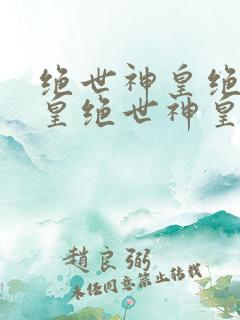 绝世神皇绝
皇绝世神皇
趙良弼
未经同意禁止转载